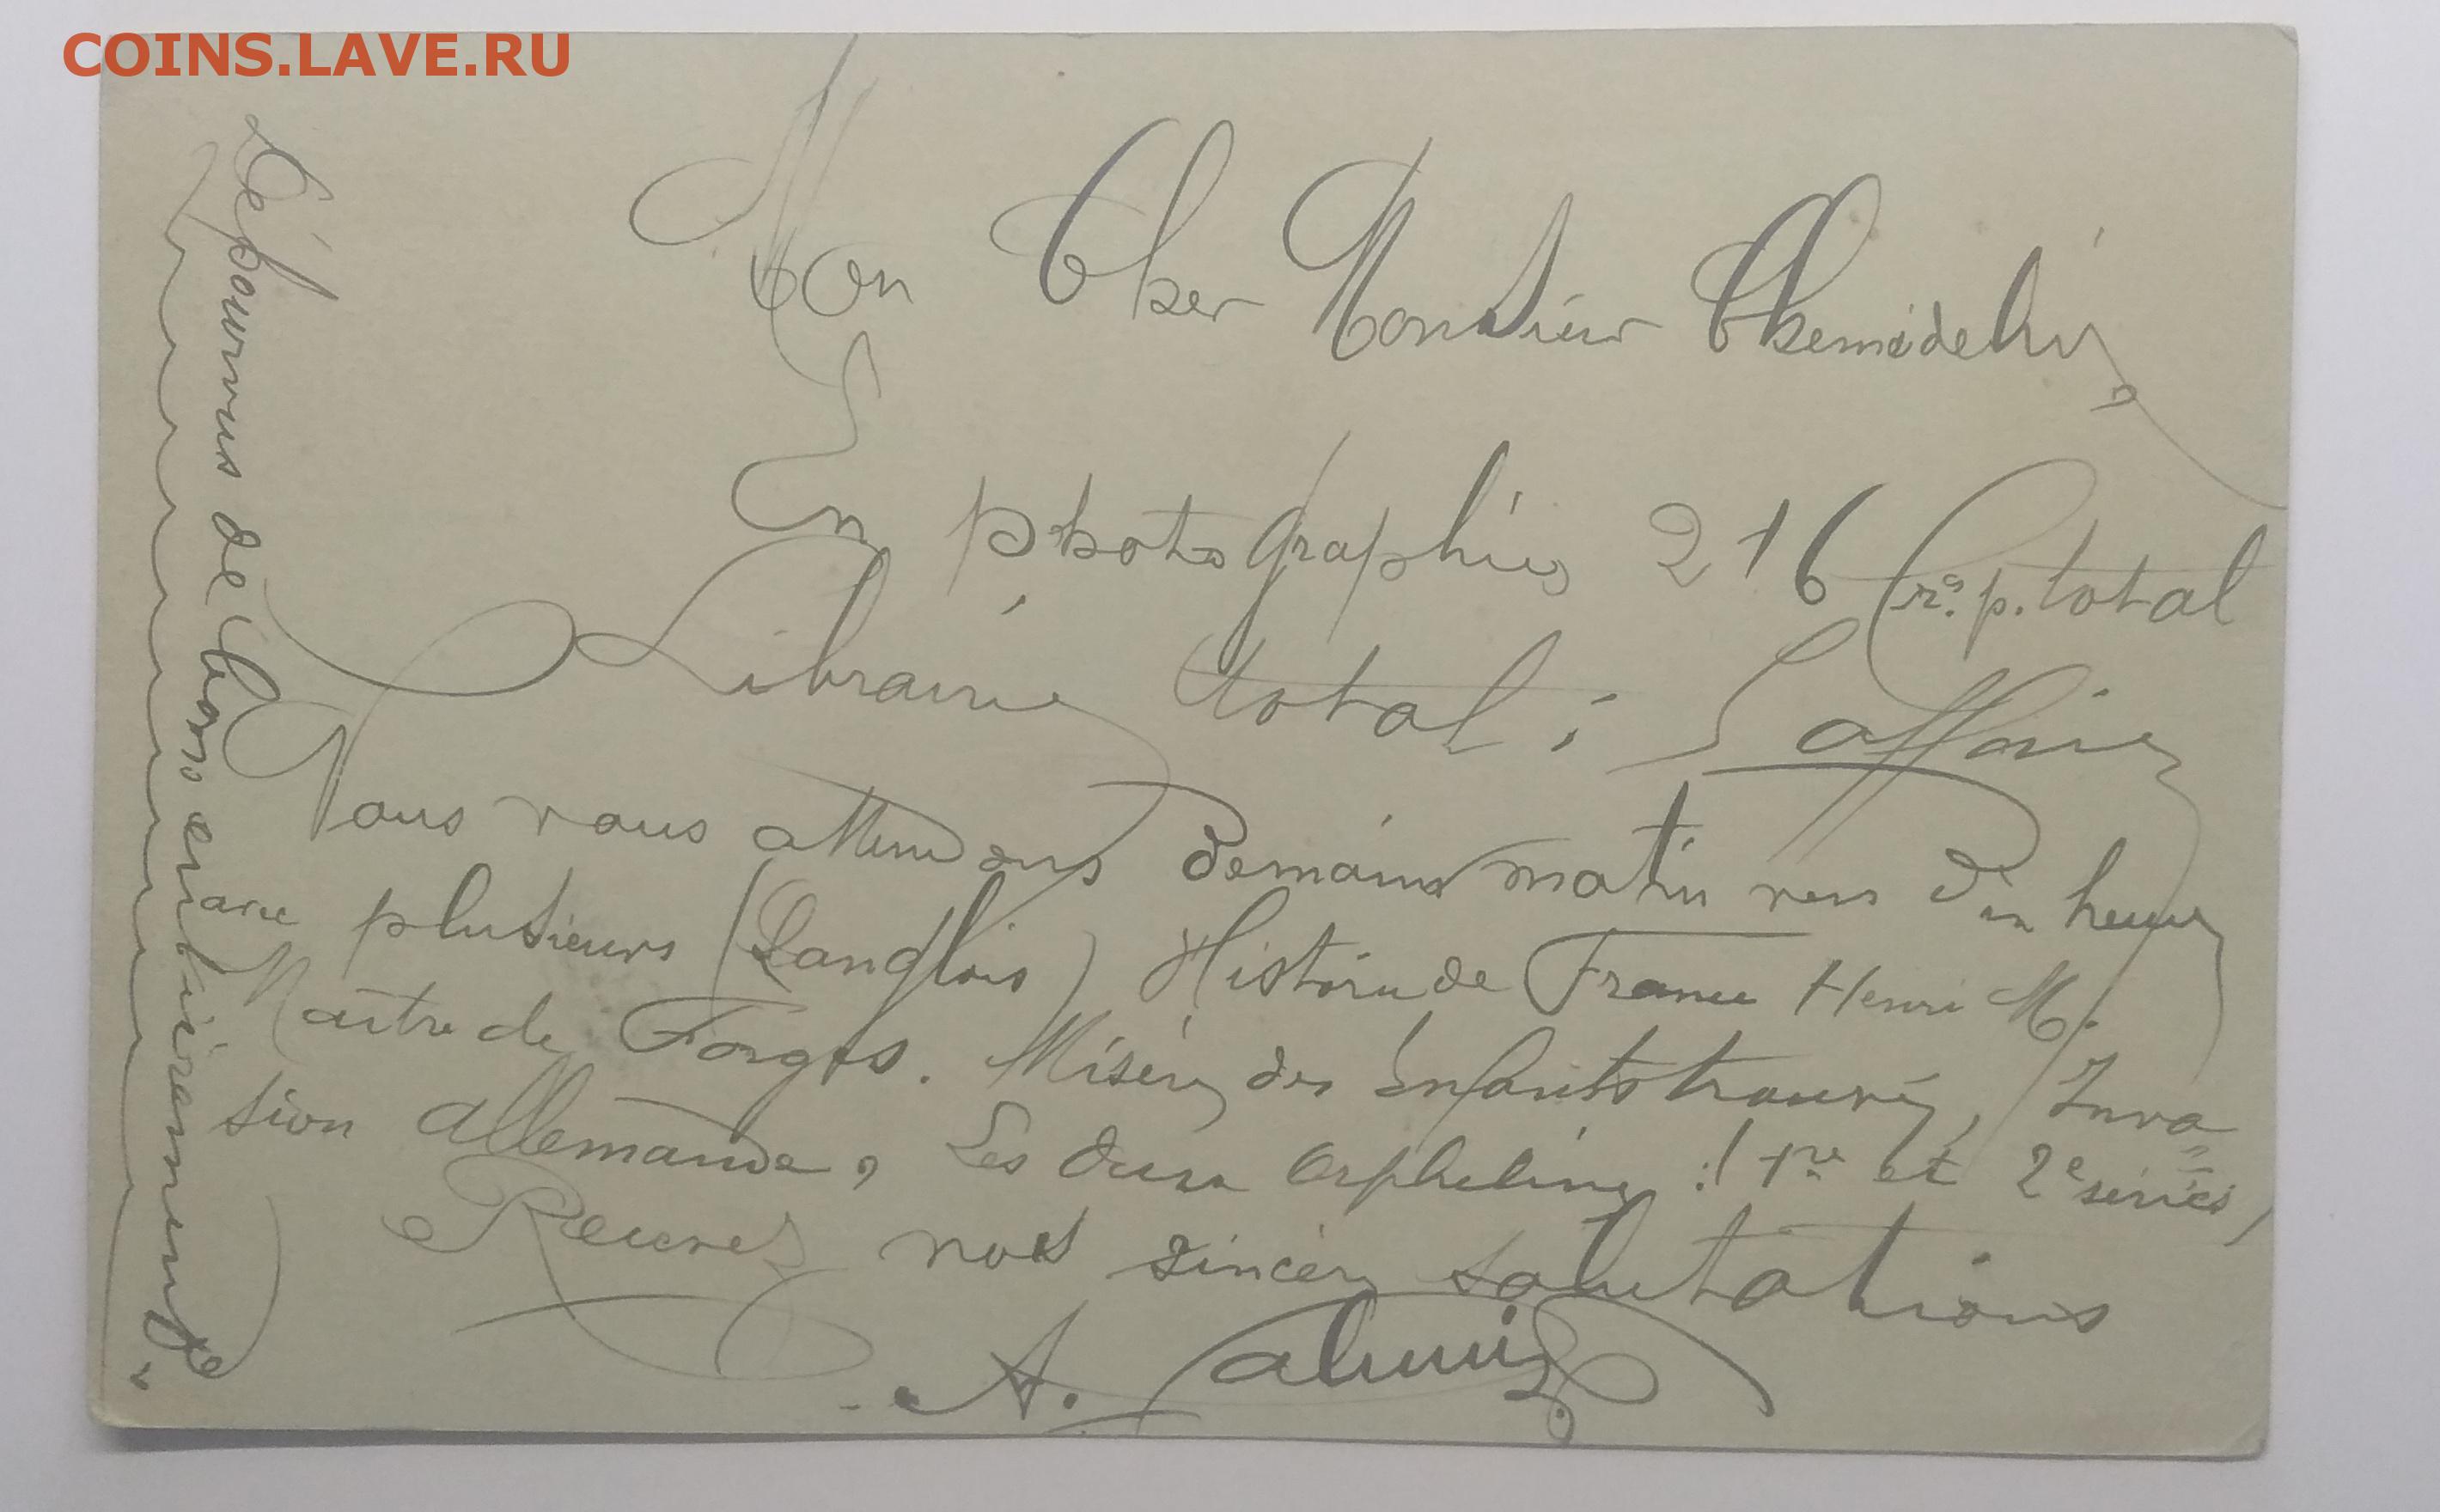 COINS.LAVE.RU
Mon Cher Monsieur
En photographies 216 p. total
Librairie total : 5 affaires
Nous vous attendons demain matin vers dix heures
avec plusieurs (Langlois) Histoire de France Henri M.
Maitre de Forges. Misères des Enfants trouvés, Inva=
sion allemande, Les deux Orphelines : 1re et 2e séries,
Recevez nos sincères salutations
A.
Dépourvus de bons entièrement